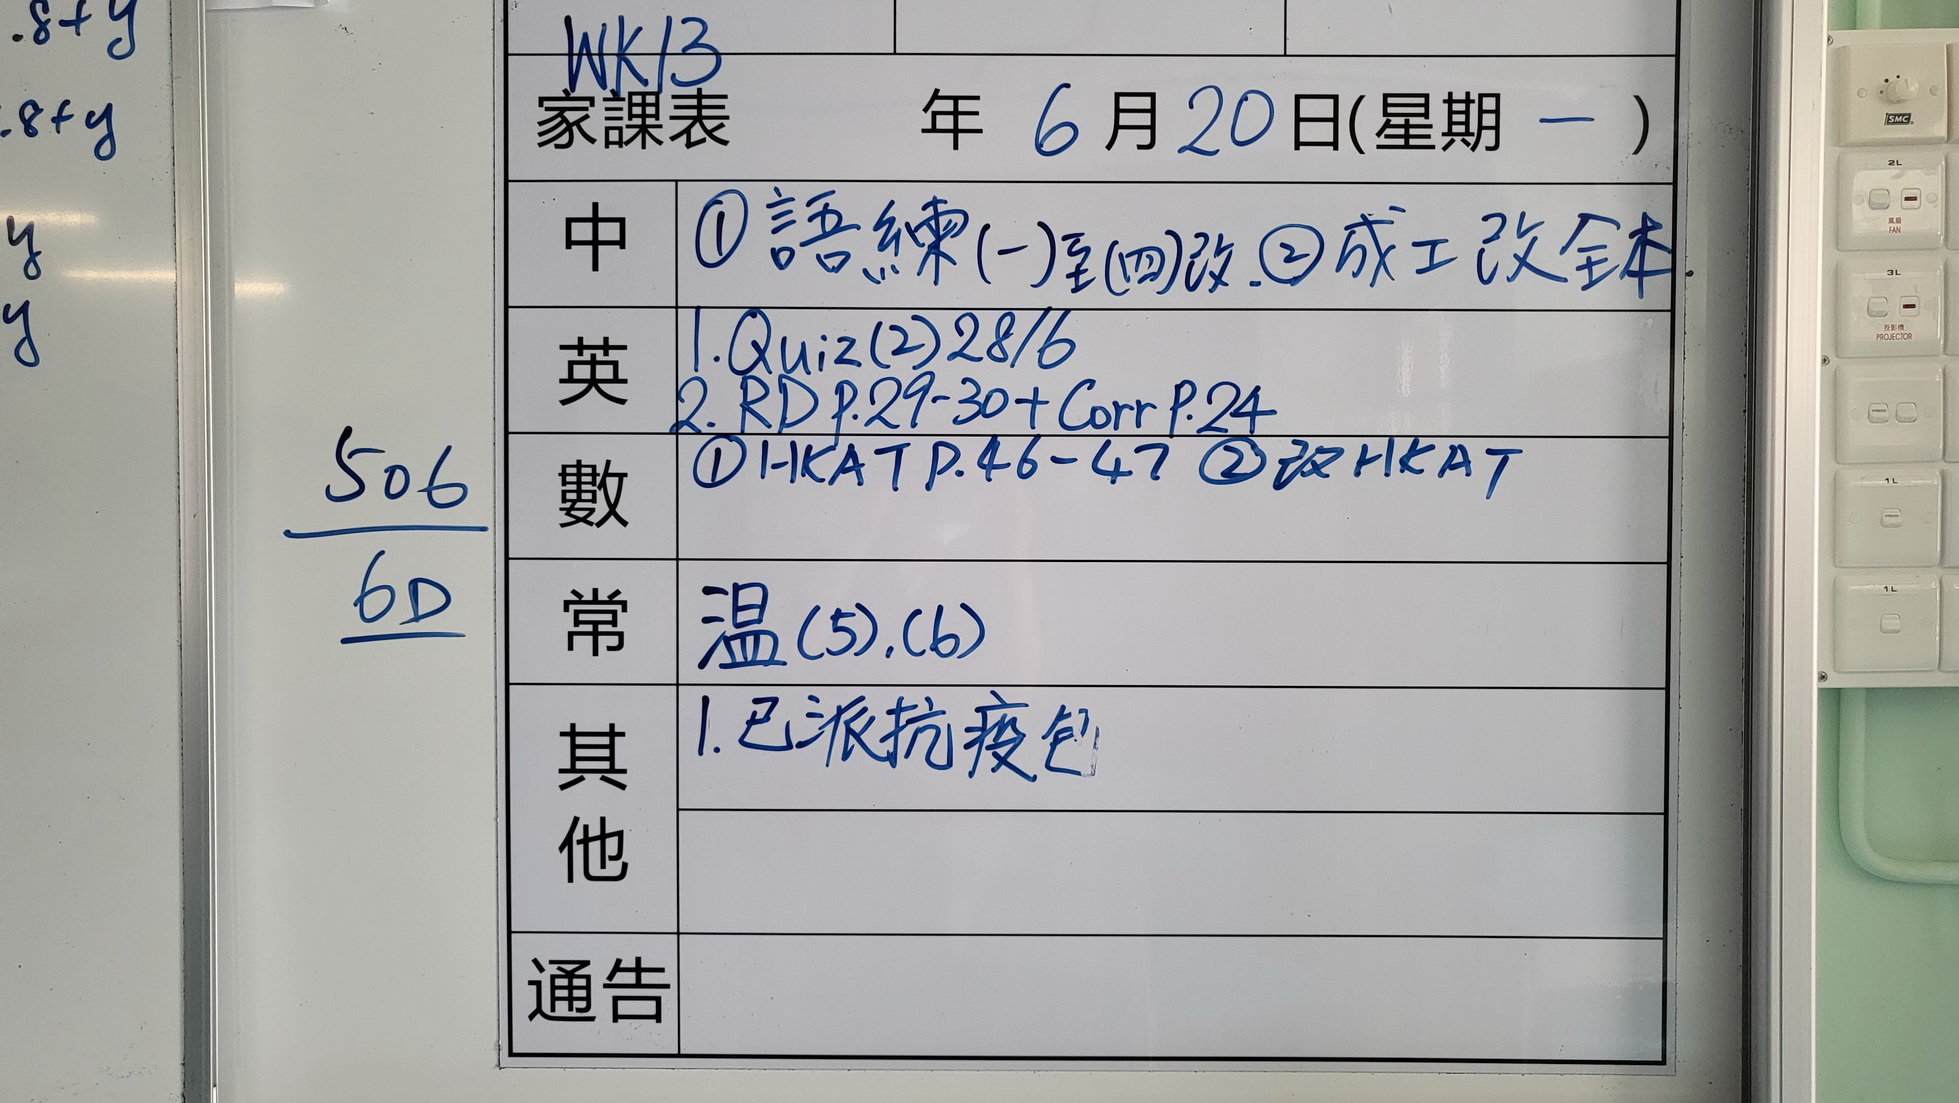 .8+y
.8+y
y
y
506
6D
WK13
家課表 年 6 月 20 日(星期 一 )
中 ① 語練(一)至(四)改.② 成工改全本.
英 1.Quiz(2)28/6
2. RD P.29-30+Corr P.24
數 ①HKAT P.46-47 ②改HKAT
常 温(5).(6)
其他 1.已派抗疫包
通告
SMC
2L
風扇
FAN
3L
投影機
PROJECTOR
1L
1L